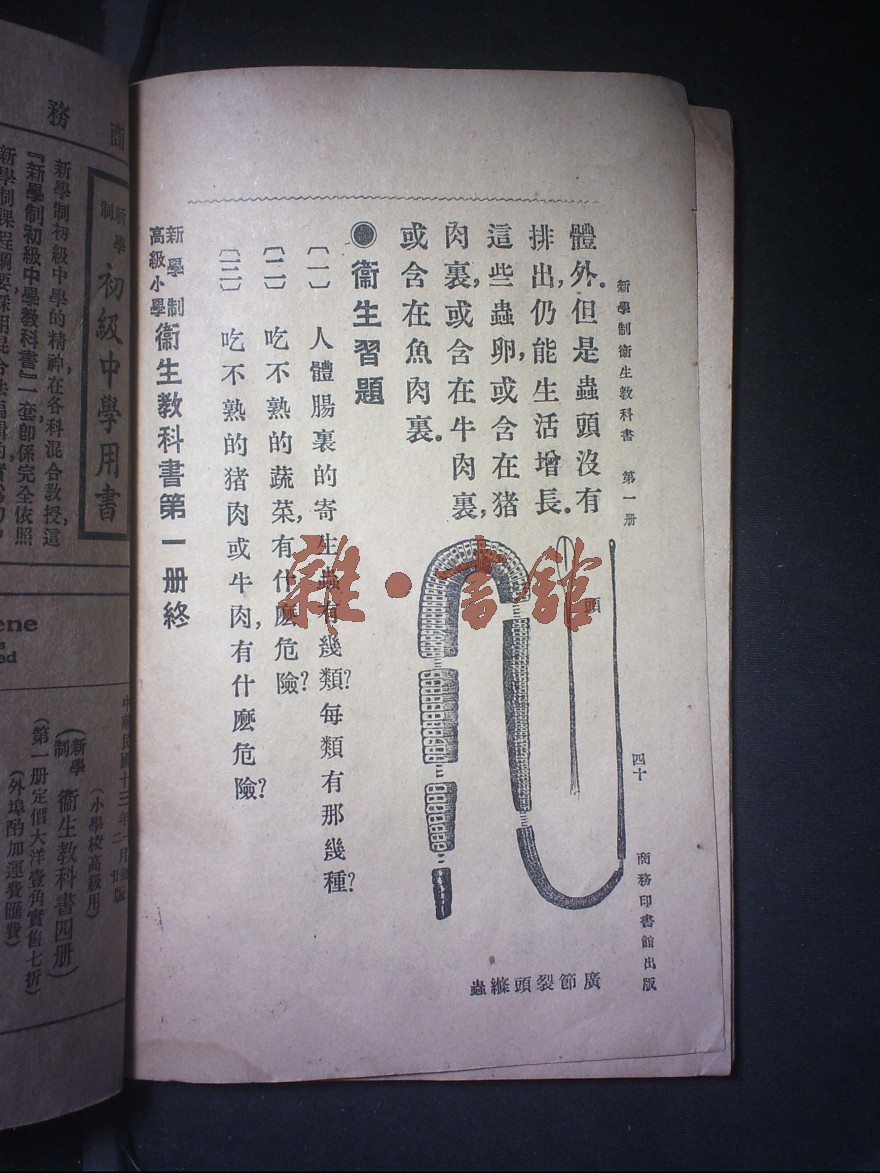 新學制衞生教科書　第一册
四十
商務印書館出版
體外。但是蟲頭沒有
排出，仍能生活增長。
這些蟲卵，或含在猪
肉裏，或含在牛肉裏，
或含在魚肉裏。
頭
廣節裂頭縧蟲
●衞生習題
〔一〕　人體腸裏的寄生蟲有幾類？每類有那幾種？
〔二〕　吃不熟的蔬菜，有什麽危險？
〔三〕　吃不熟的猪肉或牛肉，有什麽危險？
新學制高級小學衞生教科書第一册終
雜·書館
商務
新學制初級中學用書
新學制初級中學的精神，在各科混合教授，這
『新學制初級中學教科書』一套，卽係完全依照
新學制課程綱要
ene
中華民國十三年二月
版
（小學校高級用）
（新學制衞生教科書四册）
（第一册定價大洋壹角實售七折）
（外埠酌加運費匯費）